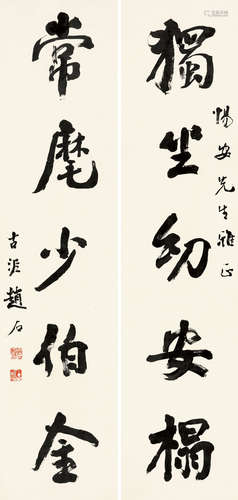 獨坐幼安榻
安先生雅正
常麾少伯金
古泥趙石